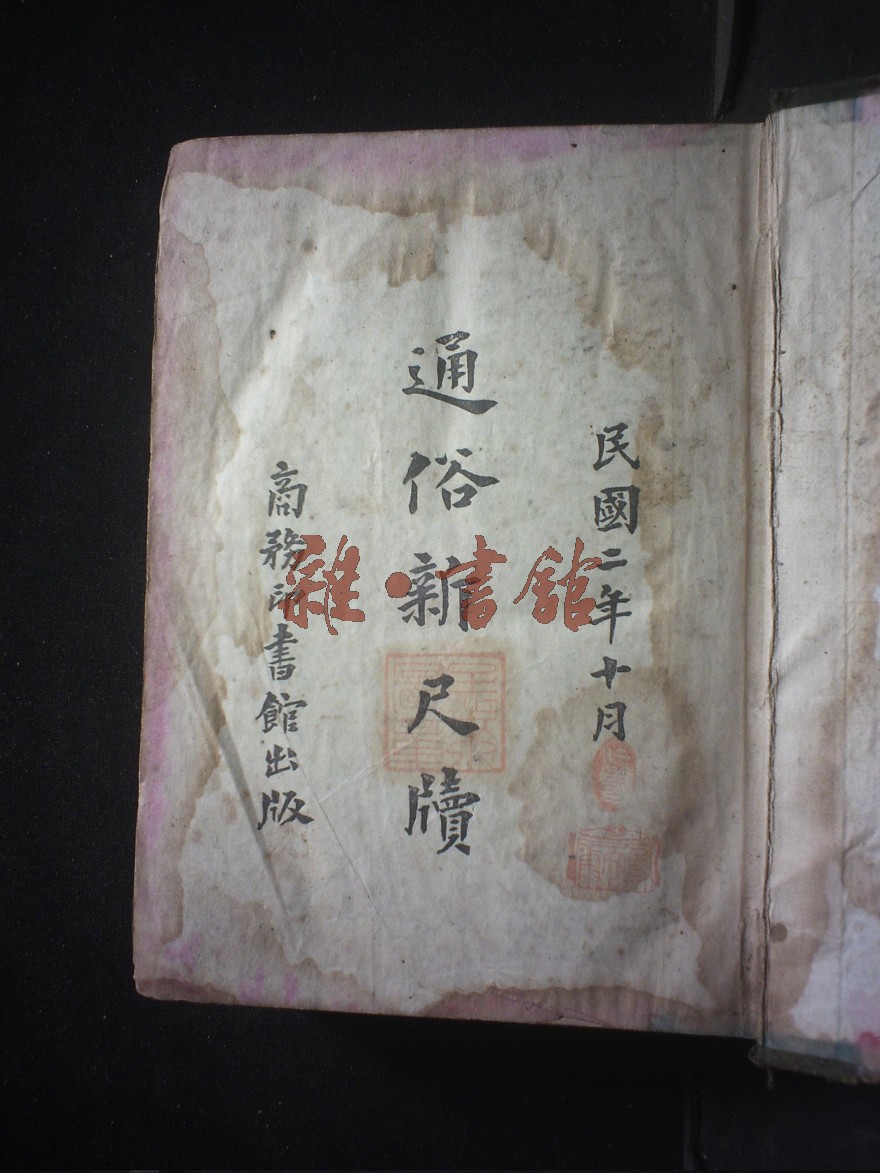 民國二年十月
通俗新尺牘
商務印書館出版
雜·書館